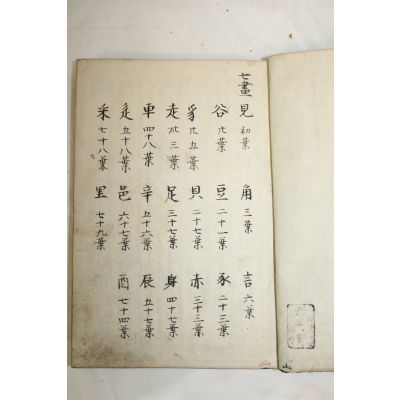 七畫
見 初葉 角 三葉 言 六葉
谷 葉 豆 二十一葉 豕 二十三葉
豸 五葉 貝 二十七葉 赤 三十三葉
走 三葉 足 三十七葉 身 四十七葉
車 四十八葉 辛 五十六葉 辰 五十七葉
辵 五十八葉 邑 六十七葉 酉 七十四葉
釆 七十八葉 里 七十九葉